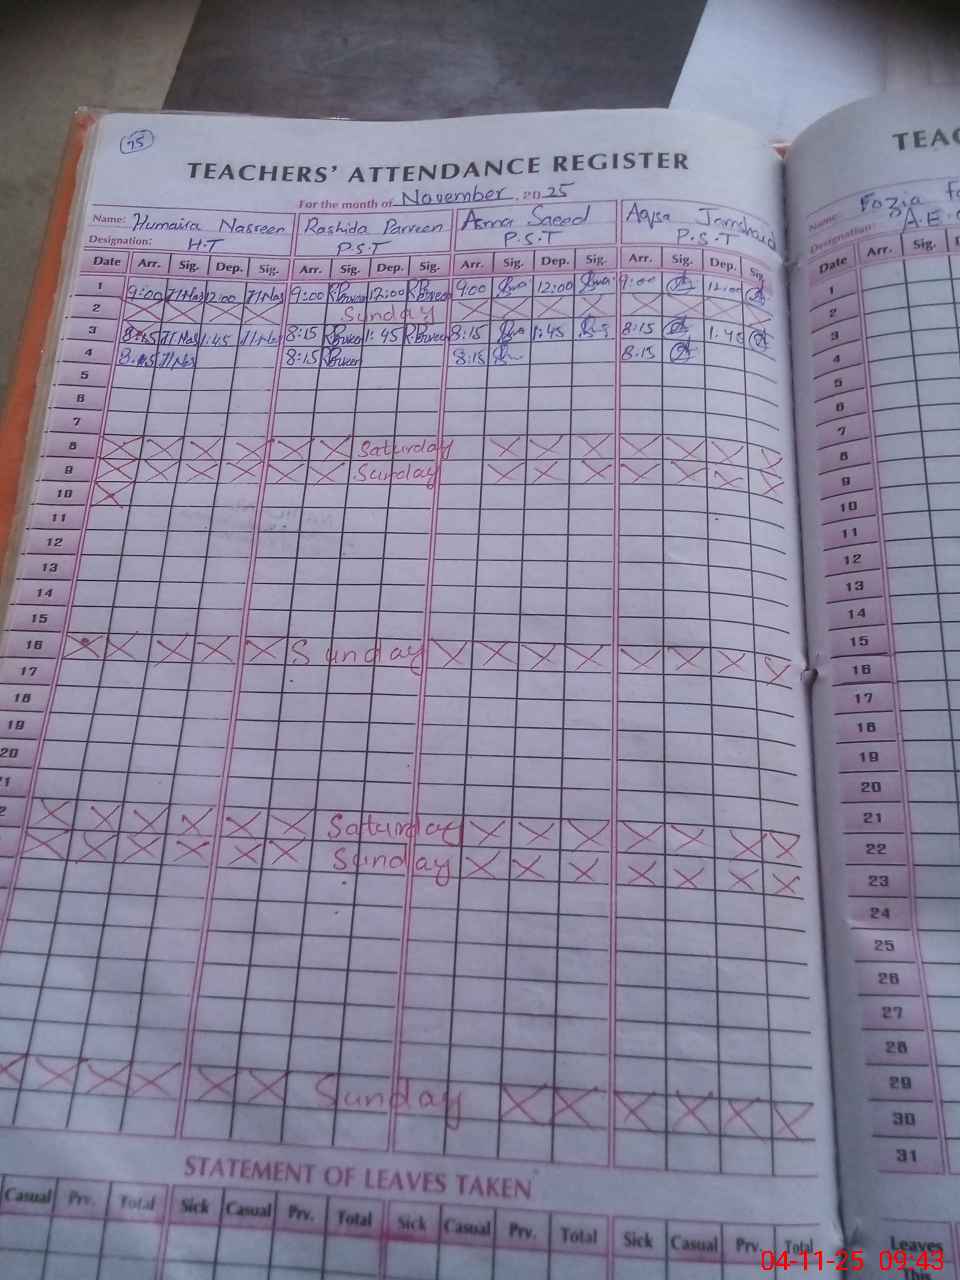 75
TEACHERS' ATTENDANCE REGISTER
For the month of November. 2025
Name: Humaira Nasreen Rashida Parveen Asma Saeed Aqsa Jamshaid
Designation: H.T P.S.T P.S.T P.S.T
Date Arr. Sig. Dep. Sig. Arr. Sig. Dep. Sig. Arr. Sig. Dep. Sig. Arr. Sig. Dep. Sig.
1 9:00 H Nas 12:00 H Nas 9:00 R Parveen 12:00 R Parveen 9:00 12:00 9:00 12:00
2 Sunday
3 8:15 H Nas 1:45 H Nas 8:15 R Parveen 1:45 R Parveen 8:15 1:45 8:15 1:45
4 8:15 H Nas 8:15 R Parveen 8:15 8:15
5
6
7
8 Saturday
9 Sunday
10
11
12
13
14
15
16 Sunday
17
18
19
20
21
2 Saturday
Sunday
Sunday
STATEMENT OF LEAVES TAKEN
Casual Prv. Total Sick Casual Prv. Total Sick Casual Prv. Total Sick Casual Prv. Total
TEAC
Name: Fozia Fa
Designation: A.E.O
Date Arr. Sig. D
1
2
3
4
5
6
7
8
9
10
11
12
13
14
15
16
17
18
19
20
21
22
23
24
25
26
27
28
29
30
31
Leaves
This
04-11-25 09:43